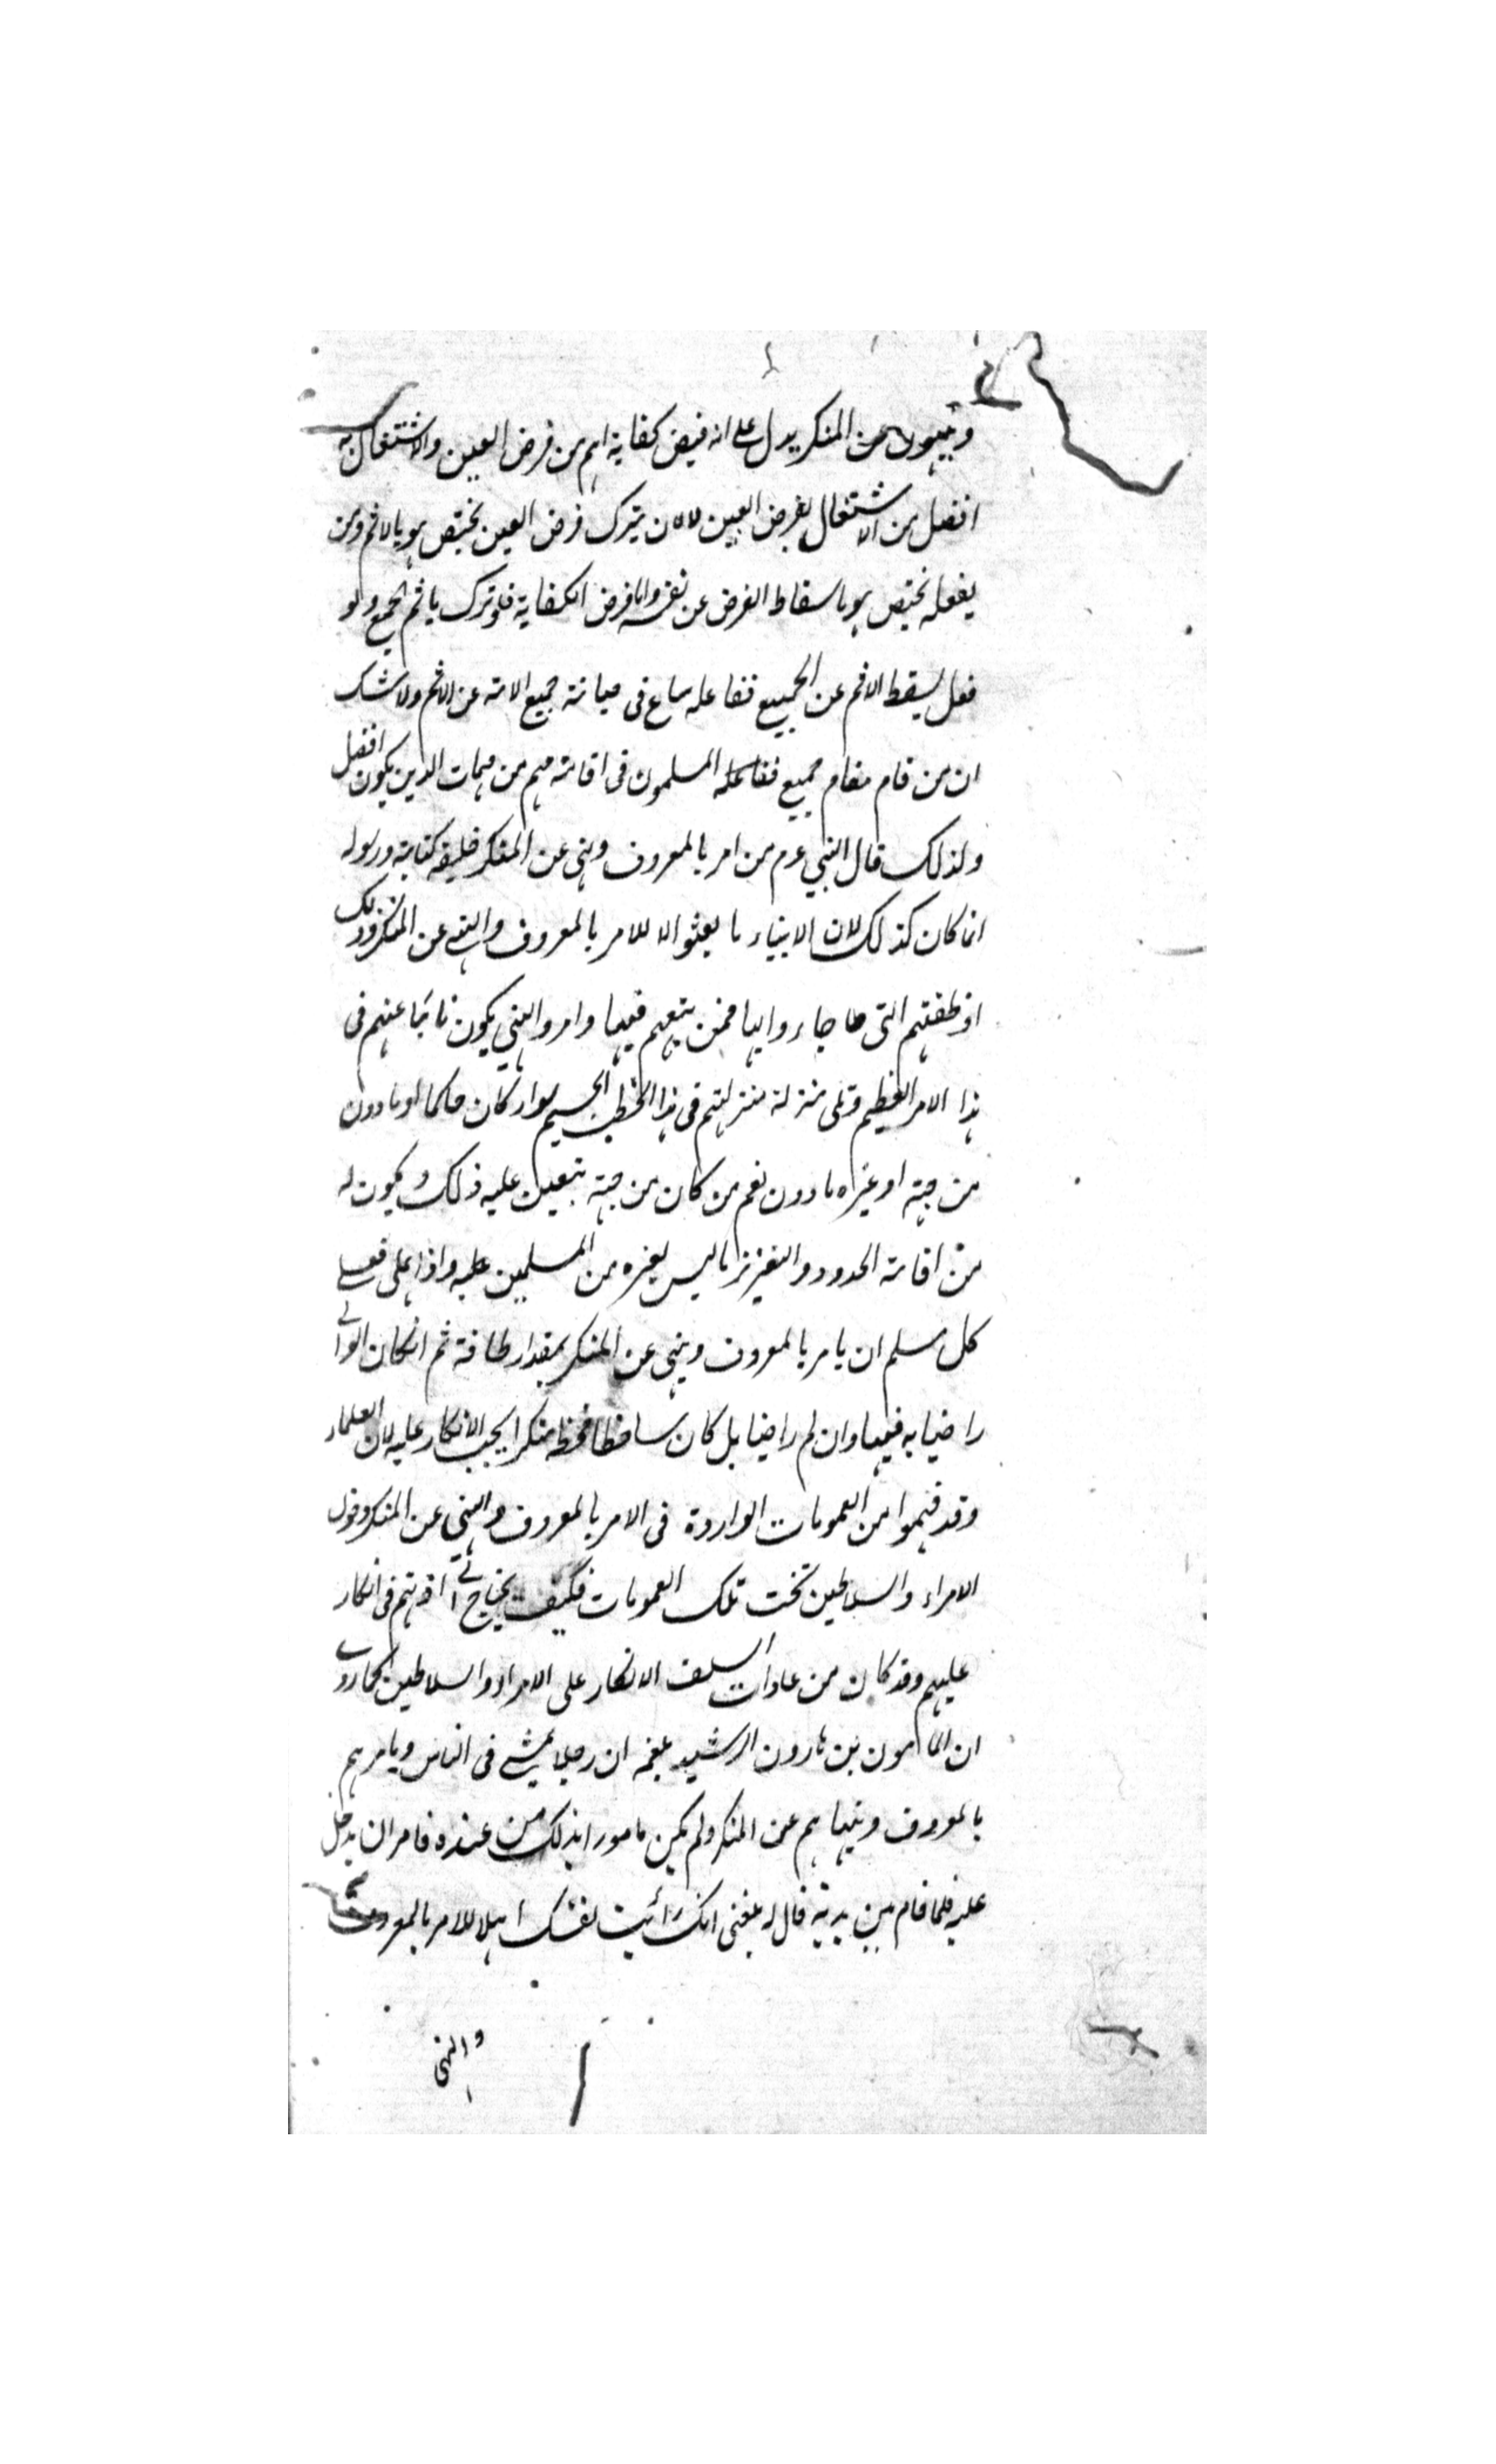 وينهون عن المنكر يدل على انه فيض كفاية اهم من فرض العين والاشتغال به
افضل من الاشتغال بفرض العين لان يترك فرض العين يختص هو بالاثم ومن
يفعله يختص هو باسقاط الفرض عن نفسه واما فرض الكفاية فلو ترك ياثم الجميع ولو
فعل يسقط الاثم عن الجميع ففاعله ساع فى صيانة جميع الامة عن الاثم ولا شك
ان من قام مقام جميع المسلمون فى اقامة مهم من مهمات الدين يكون افضل
ولذلك قال النبي عم من امر بالمعروف ونهى عن المنكر خليفة كتابه ورسوله
انما كان كذلك لان الانبياء ما بعثوا الا للامر بالمعروف والنهى عن المنكر وذلك
التى جاءوا بها فمن يتبعهم فيها وامر والنهي يكون نائبا عنهم فى
هذا الامر العظيم منزلة منزلتهم فى هذا الخطب الجسيم سواء كان حاكما او مادون
من جهته او غيره مادون نعم من كان من جهته يتعين عليه ذلك ويكون له
من اقامة الحدود والتعزيز ما ليس لغيره من المسلمين عليه واذا على
كل مسلم ان يامر بالمعروف وينهى عن المنكر بمقدار طاقة ثم انكان الوالى
راضيا به فيها وان لم راضيا بل كان ساخطا منكرا يجب الانكار عليه لان العلماء
وقد فهموا من العمومات الواردة فى الامر بالمعروف والنهي عن المنكر دخول
الامراء والسلاطين تحت تلك العمومات فكيف يحتاج الى اذنهم فى انكار
عليهم وقد كان من عادات السلف الانكار على الامراء والسلاطين كما روى
ان المامون بن هارون الرشيد بلغه ان رجلا يمشى فى الناس ويامرهم
بالمعروف وينهاهم عن المنكر ولم يكن مامورا بذلك من عنده فامر ان يدخل
عليه فلما قام بين يديه قال له بلغنى انك رأيت نفسك اهلا للامر بالمعروف
والنهى